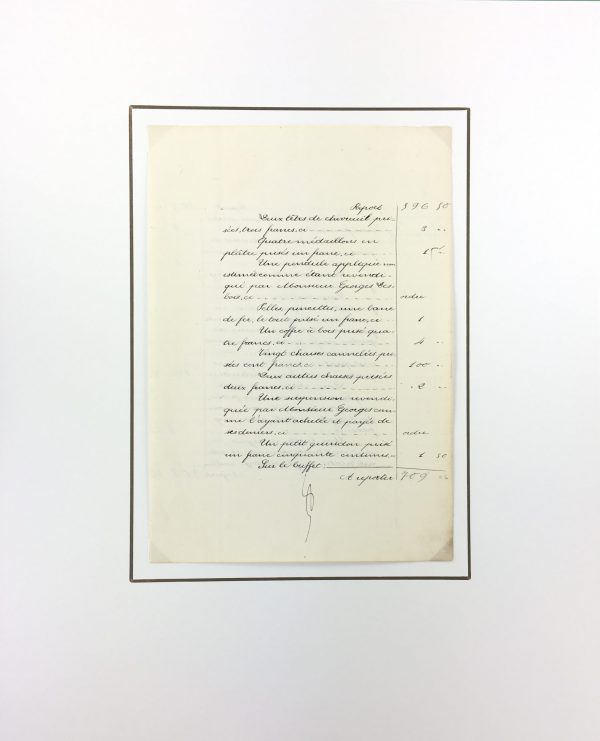 Report 596 50
Deux têtes de chevreuil pri-
sées, trois francs, ci 3 "
Quatre médaillons en
plâtre prisés un franc, ci 1 "
Une pendule applique non
estimée comme étant revendi-
quée par Monsieur Georges
bois, ci ordre
Pelles, pincettes, une barre
de fer, le tout prisé un franc, ci 1
Un coffre à bois prisé qua-
tre francs, ci 4 "
Vingt chaises cannelées pri-
sées cent francs, ci 100 "
Deux autres chaises prisées
deux francs, ci 2 "
Une suspension revendi-
quée par Monsieur Georges com-
me l'ayant achetée et payée de
ses deniers, ci ordre
Un petit guéridon prisé
un franc cinquante centimes 1 50
Sur le buffet:
A reporter 709